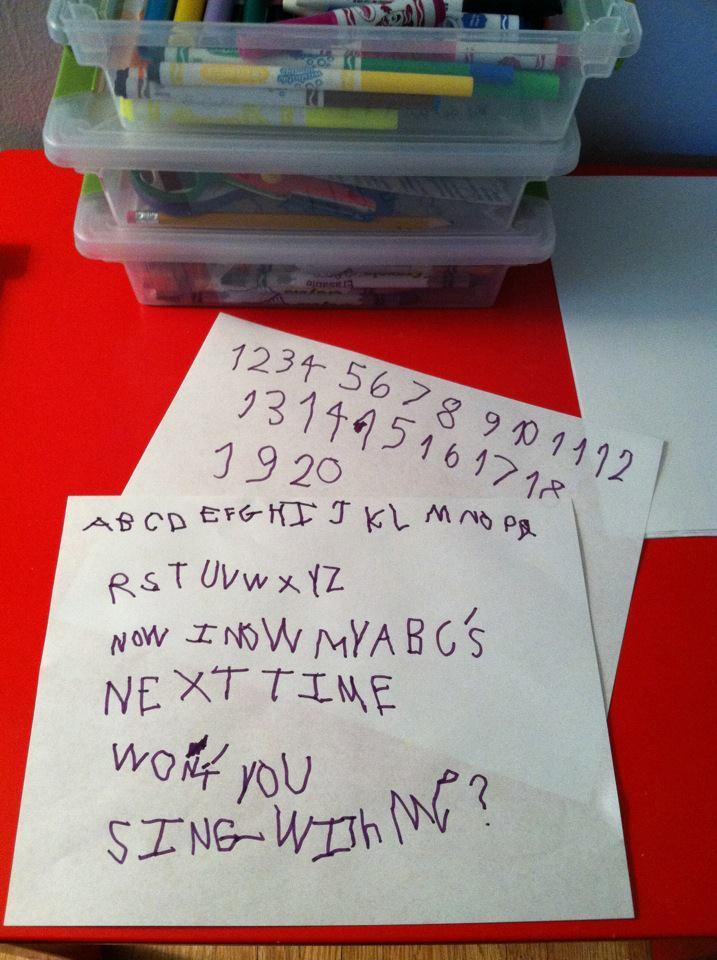 1 2 3 4 5 6 7 8 9 10 11 12
13 14 15 16 17 18
19 20
A B C D E F G H I J K L M N O P Q
R S T U V W X Y Z
NOW I NOW MY A B C'S
NEXT TIME
WON'T YOU
SING WITH ME?